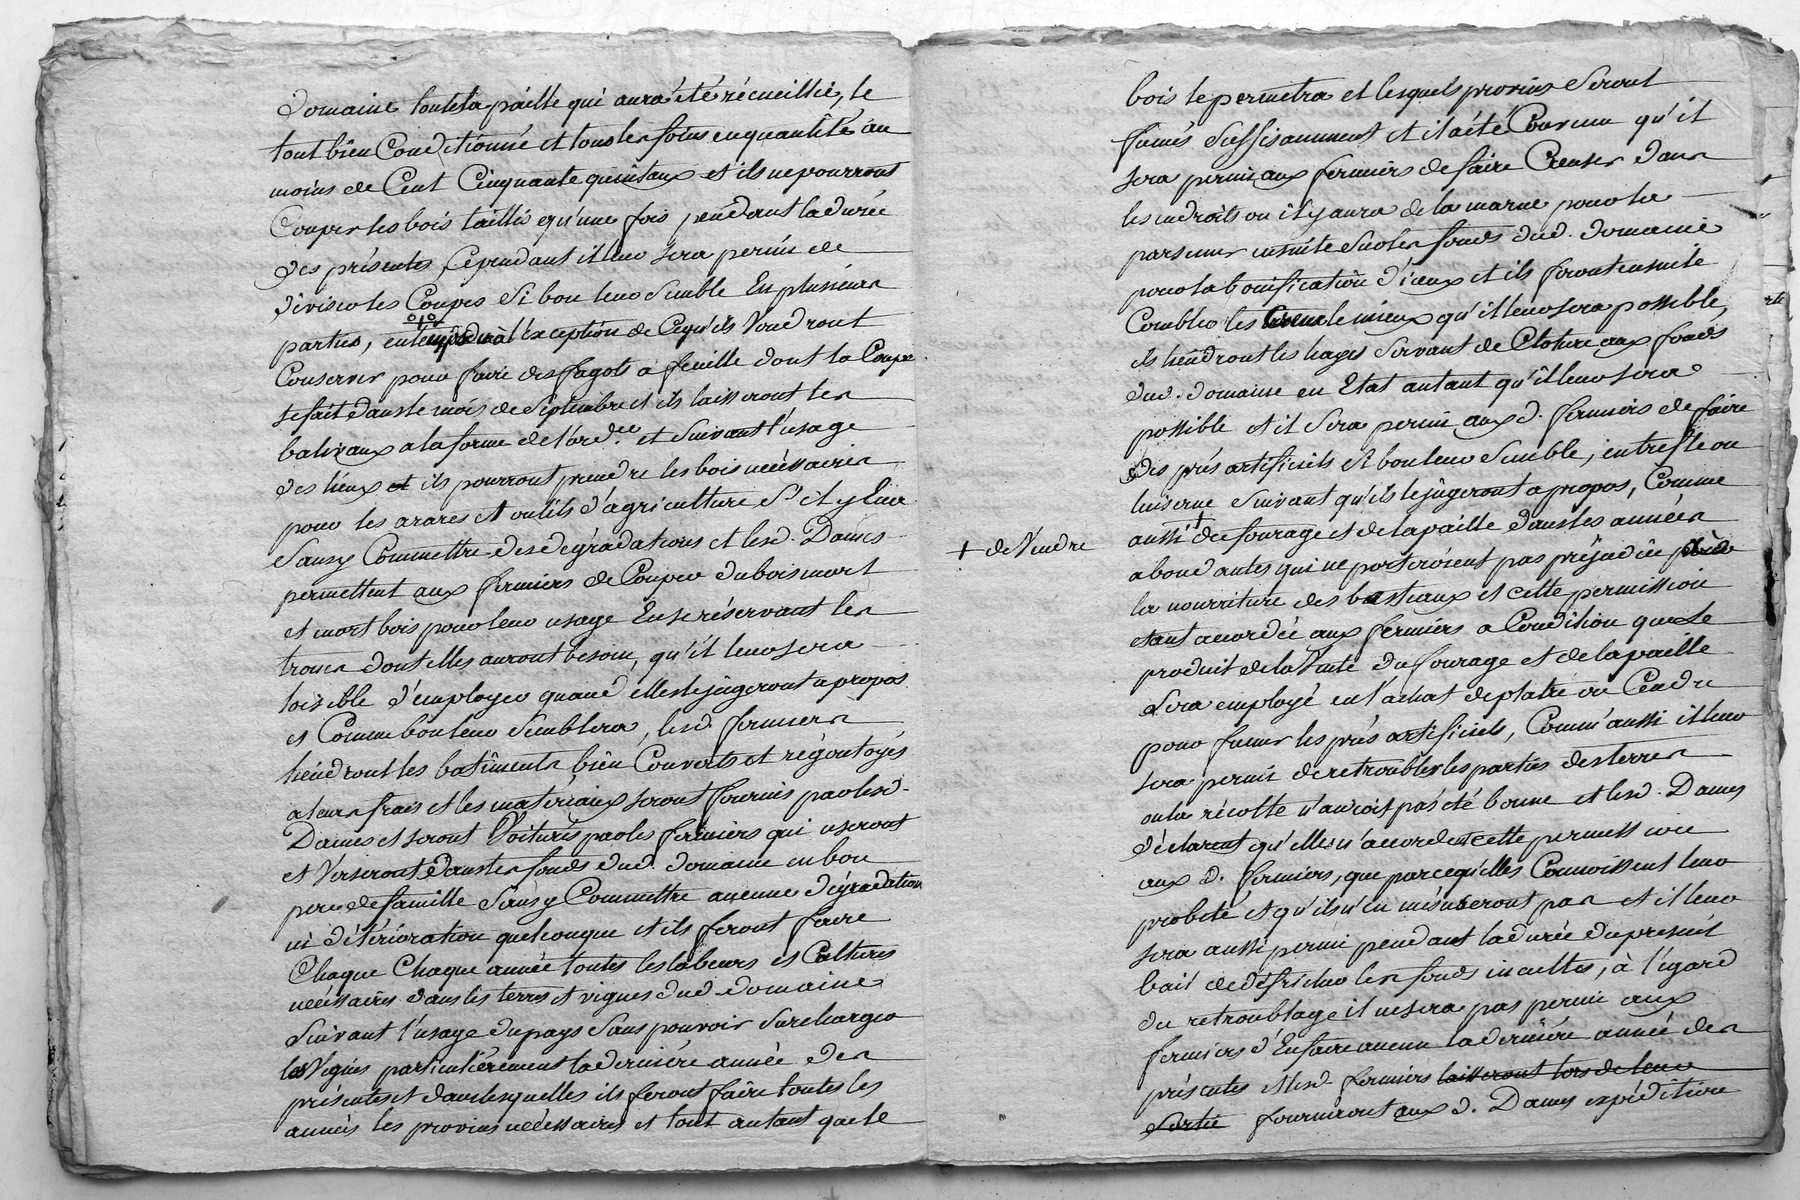 Domaine toute la paille qui aura été récueillie, le
tout bien Conditionné et tous les foins en quantité au
moins de Cent Cinquante quintaux et ils ne pourront
Couper les bois taillis qu'une fois pendant la durée
des présentes, Cependant il leur sera permis de
diviser les Coupes si bon leur semble En plusieurs
parties, à l'exception de Cequ'ils Voudront
Conserver pour faire des fagots à feuille dont la Coupe
se fait dans le mois de Septembre et ils laisseront les
balivaux a la forme de l'ord.ce et suivant l'usage
des lieux et ils pourront prendre les bois nécéssaires
pour les arares et outils d'agriculture s'il y En a
sans y Commettre des dégradations et lesd. Dames
permettent aux fermiers de Couper du bois mort
et mort bois pour leur usage En se réservant les
troncs dont elles auront besoin, qu'il leur sera
loisible d'employer quand elles le jugeront a propos
et Comme bon leur Semblera, lesd. fermiers
tiendront les batiments bien Couverts et régoutoyés
a leurs frais et les matériaux seront fournis par lesd.
Dames et seront Voiturés par les fermiers qui useront
et Verseront dans les fonds dud. domaine en bon
pere de famille Sans y Commettre aucune dégradation
ni détérioration quelconque et ils feront faire
Chaque Chaque année toutes les labeurs et Cultures
nécéssaires dans les terres et vignes dud domaine
Suivant l'usage du pays Sans pouvoir Surcharger
les Vignes particuliérement la derniére année des
présentes et dans lesquelles ils feront faire toutes les
années les provins nécéssaires et tout autant que le
bois le permetra et lesquels provins Seront
fumés Suffisamment et il a été Convenu qu'il
sera permis aux fermiers de faire Creuser dans
les endroits ou il y aura de la marne pour la
parsemer ensuite sur les fonds dud. domaine
pour la bonification d'iceux et ils feront ensuite
Combler les Creux le mieux qu'il leur sera possible,
ils tiendront les hayes Servant de Cloture aux fonds
dud. domaine en Etat autant qu'il leur sera
possible et il Sera permis aux d. fermiers de faire
des prés artificiels Si bon leur Semble, en trefle ou
luiserne Suivant qu'ils le jugeront a propos, Comme
aussi + du fourage et de la paille dans les années
+ de Vendre
abondantes qui ne porteroient pas préjudice pour
la nourriture des bestiaux et cette permission
etant accordée aux fermiers a Condition que le
produit de la Vente du fourage et de la paille
sera employé en l'achat de platre ou Cendre
pour fumer les prés artificiels, Comm'aussi il leur
sera permis de retroubler les parties des terres
ou la récolte n'auroit pas été bonne et lesd. Dames
déclarent qu'elles n'accordent cette permission
aux d. fermiers, que parcequ'elles Connoissent leur
probité et qu'ils n'en mésuseront pas et il leur
sera aussi permi pendant la durée du présent
bail de défricher les fonds incultes, à l'égard
du retroublage il ne sera pas permi aux
fermiers d'En faire aucun la derniére année des
présentes et lesd fermiers laisseront lors de leur
sortie fourniront aux d. Dames expédition